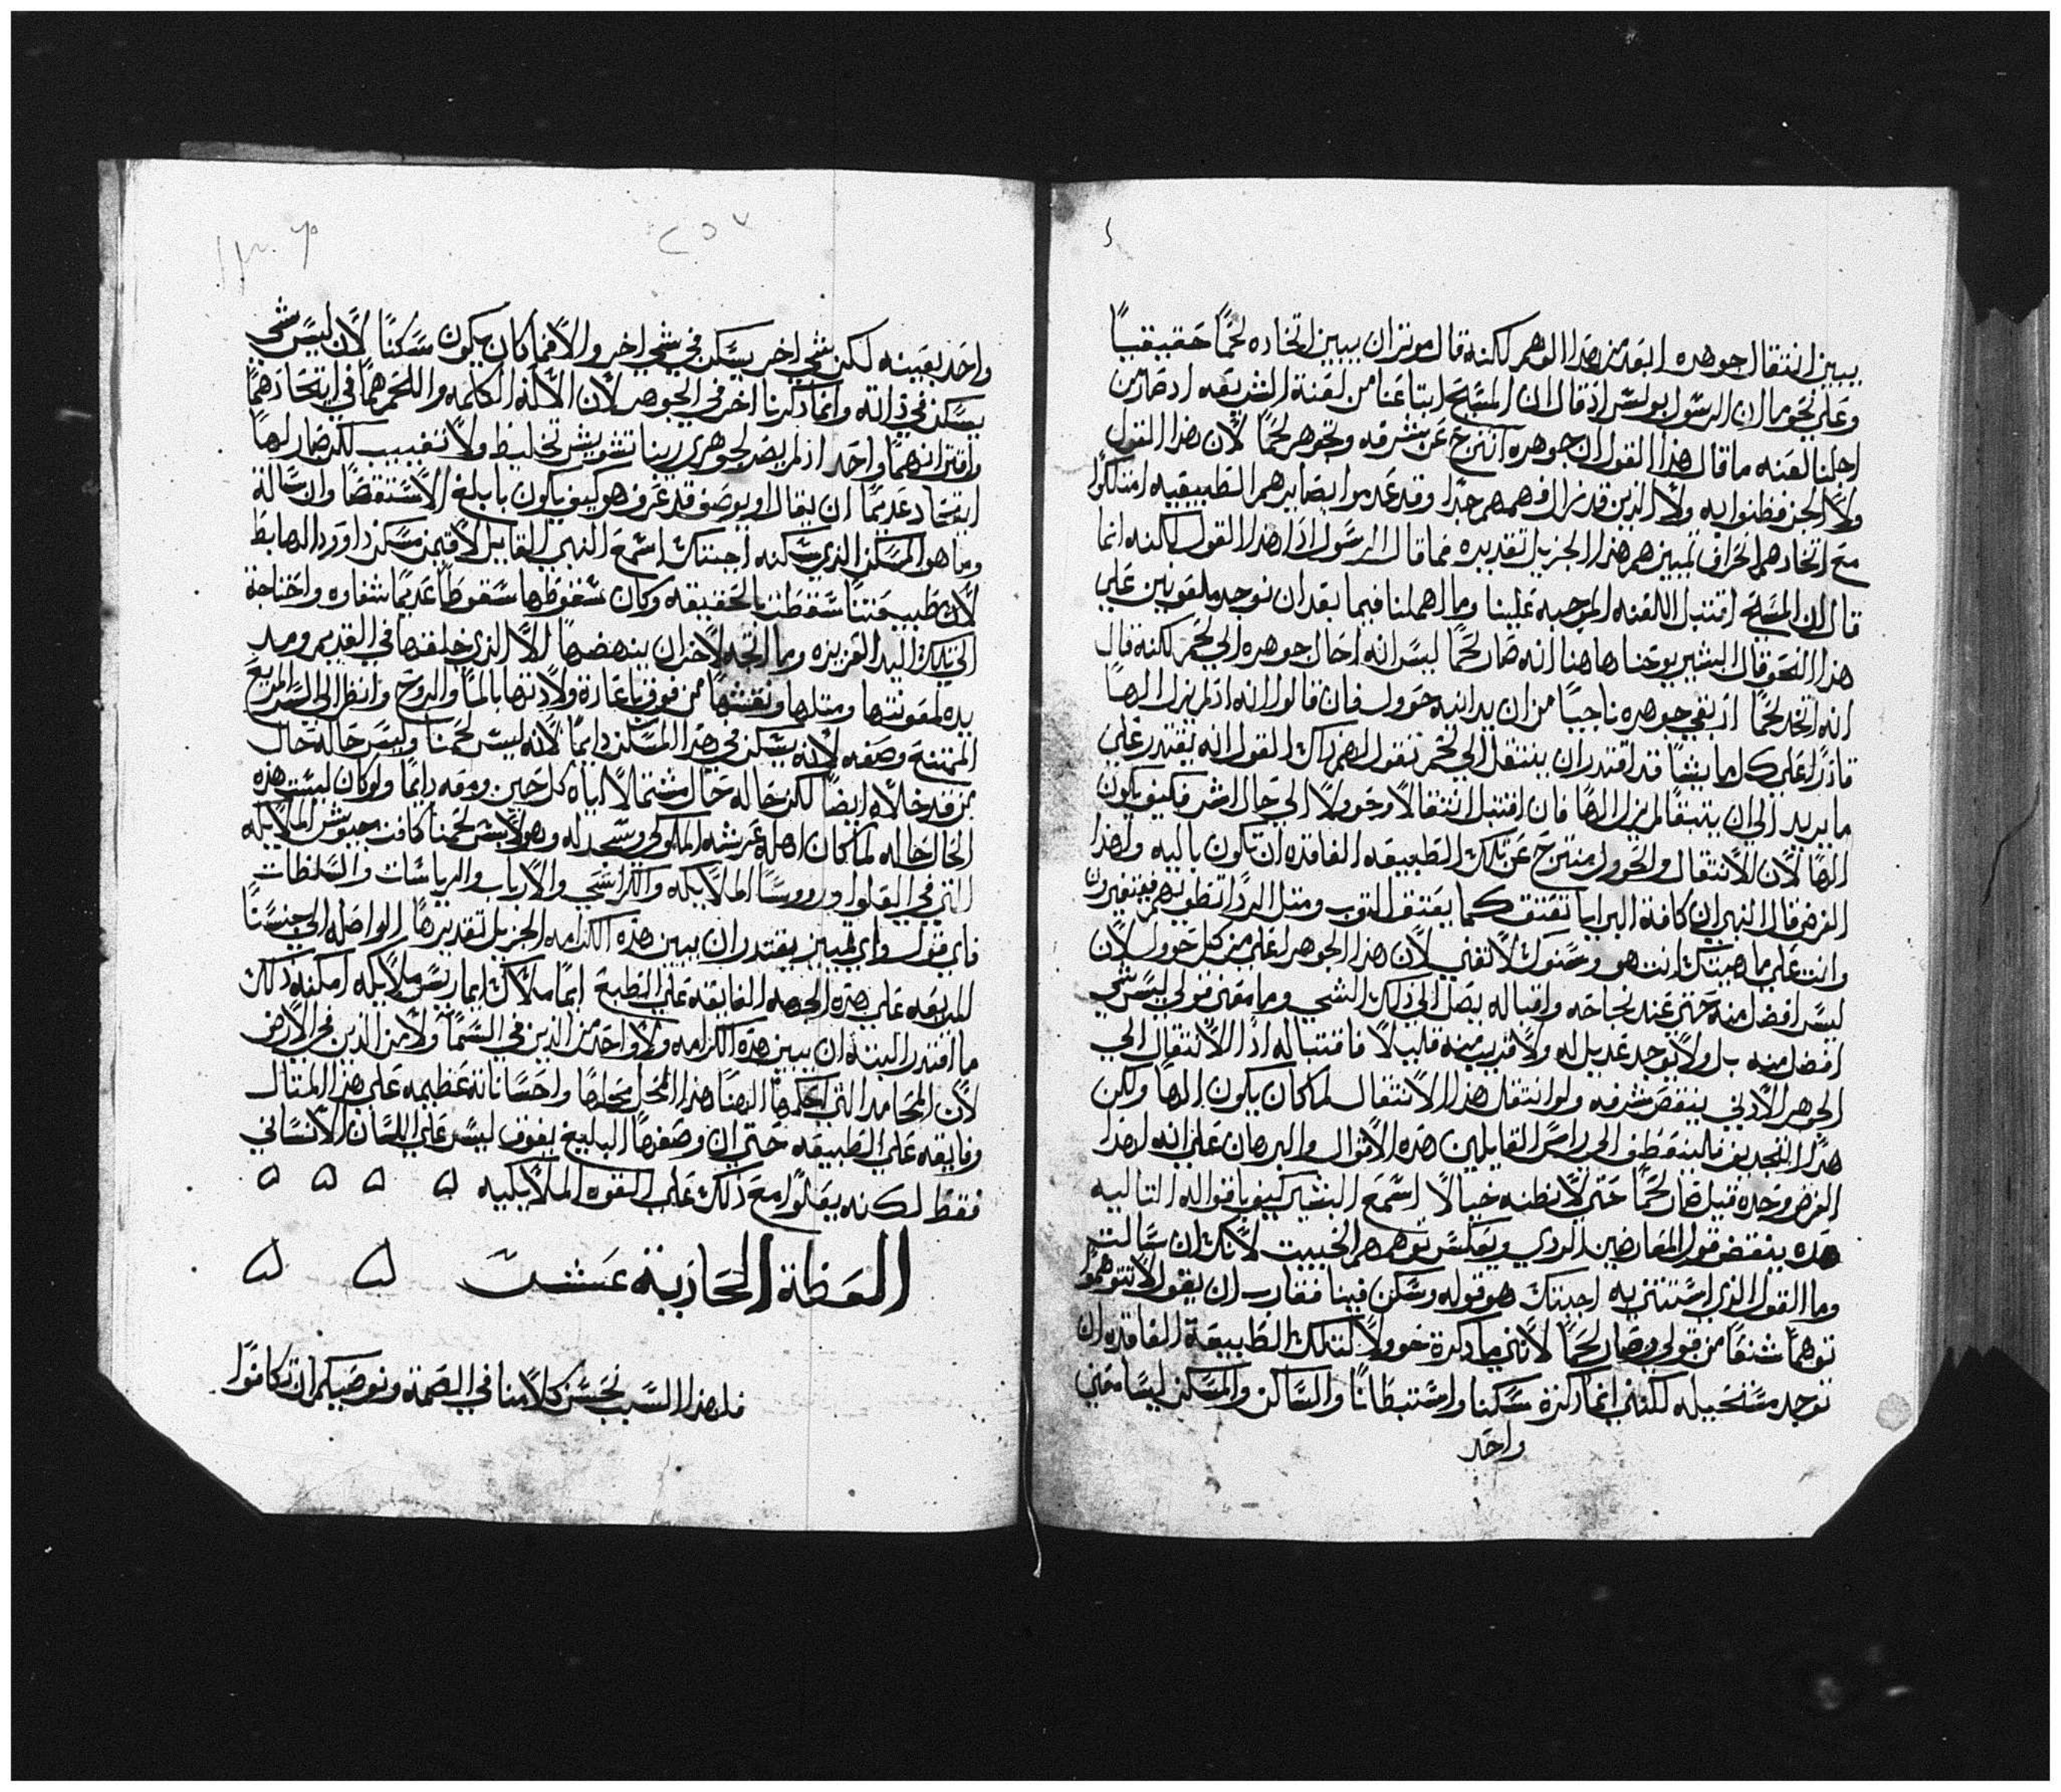 يبين انتقال جوهره ابعد من هذا الوهم لكنه قال موثران يبين اتخاده لحماً حقيقياً
وعلي نحو ما ان الرسول بولس اذ قال ان المسيح ابتاعنا من لعنة الشريعه اذ صار من
اجلنا لعنه ما قال هذا القول ان جوهره انتزح عن شرفه وتجوهر لحماً لأن هذا القول
ولا الجن فظنوا به ولا الذين قد زال فهمهم جدا وقد عدموا بصايرهم الطبيعيه امتلكوا
مع اتخادهم انحراف تمييزهم هذا الجزيل تقديره فما قال الرسول اذا هذا القول لكنه انما
قال ان المسيح اقتبل اللعنه الموجبه علينا وما اهملنا فيما بعد ان نوجد ملعونين علي
هذا النحو قال البشير يوحنا هاهنا انه صار لحماً ليس انه احال جوهره الي لحم لكنه قال
انه اتخد لحماً اذ بقي جوهره ناجياً من ان يدانيه حوول فان قالوا انه اذ لم يزل الهاً
قادراً علي كل ما يشا قد اقتدر ان ينتقل الي لحم نقول لهم ذاك القول انه يقتدر علي
ما يريد الي ان يتبقا لم يزل الهاً فان اقتبل انتقالا وحوولا الي حال اشر فكيف يكون
الهاً لأن الأنتقال والحوول منتزح عن تلك الطبيعه الفاقده ان تكون باليه ولهذا
الغرض قال النبي ان كافة البرايا تعتق كما يعتق التوب ومتل الردا تطويهم فيتغيرون
وانت علي ما هيتك انت هو وسنوك لا تفني لأن هذا الجوهر اعلي من كل حوول لأن
ليس افضل منه حتي عند نجاحه واقباله يصل الي ذلك الشي وما معني قولي ليس شي
افضل منه بل ولا يوجد عديل له ولا قريب منه قليلا فاقتباله اذاً الأنتقال الي
الجوهر الأدني ينقص شرفه ولو انتقل هذا الأنتقال لما كان يكون الهاً ولكن
هذا التجديف فلينعطف الي راس القايلين هذه الأقوال والبرهان علي انه لهذا
الغرض وحده قيل صار لحماً حتي لا تظنه خيالا اسمع البشير كيف باقواله التاليه
هذه ينقض قول المعارضين الردي ويعكس توهمهم الخبيت لأنك ان سالت
وما القول الذي استتني به اجبتك هو قوله وسكن فينا فقارب ان يقول لا تتوهموا
توهماً شنعاً من قولي وصار لحماً لأنني ما ذكرة حوولا لتلك الطبيعة الفاقده ان
توجد مستحيله لكنني انما ذكرة سكنا واستبطانا والساكن والمسكن ليسا معني
واحد
واحد بعينه لكن شي اخر يسكن في شي اخر والا فما كان يكون سكناً لأن ليس شي
يسكن في ذاته وانما ذكرنا اخر في الجوهر لأن الأله الكلمه واللحم هما في اتحادهما
واقترانهما واحد اذ لم يصر لجوهري ربنا تشويش تخليط ولا تغييب لكن صار لها
اتحاد عديماً ان يقال او يوصف قد عرف هو كيف يكون بابلغ الأستقصا وان سالة
وما هو المسكن الذي سكنه اجبتك اسمع النبي القايل لأقيمن مسكن داوود الهابط
لأن طبيعتنا سقطت بالحقيقه وكان سقوطها سقوطا عديماً شفاوه واحتاجة
الي تلك اليد العزيزه وما اتجه لأخر ان ينهضها الا الذي خلقها في القديم ومد
يده لمعونتها ومتلها ونقشها من فوق باعادة ولادتها بالما والروح وانظر الي السر المريع
الممتنع وصفه لأنه يسكن في هذا المسكن دايماً لأنه لبس لحمنا وليس حاله حال
من قد خلاه ايضا لكن حاله حال مشتملا اياه كل حين ومعه دايماً ولو كان ليست هذه
الحال حاله لما كان اهله عرشه الملوكي وسجد له وهو لابس لحمنا كافت جيوش الملايكه
التي في العلوا وروسا الملايكه والكراسي والأرباب والرياسات والسلطات
فاي قول واي تمييز يقتدر ان يبين هذه الكرامه الجزيل تقديرها الواصله الي جنسنا
المريعه علي هذه الجهه الفايقه علي الطبع ايما ملاك ايما ريس ملايكه امكنه ذلك
ما اقتدر البتة ان يبين هذه الكرامه ولا واحد من الذين في السما ولا من الذين في الأرض
لأن المحامد التي احكمها الهنا هذا المحل محلها واحساناته عظيمه علي هذا المتال
وفايقه علي الطبيعه حتي ان وصفها البليغ يفوق ليس علي اللسان الأنساني
فقط لكنه يعلوا مع ذلك علي القوه الملايكيه ه ه ه ه
العظة الحادية عشرت ه ه
فلهذا السبب نحسن كلامنا في الصمة ونوصيكم ان تكافوا